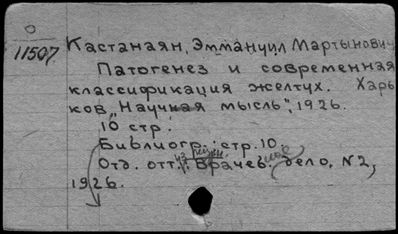 О
11507
Кастанаян, Эммануил Мартынович
Патогенез и современная
классификация желтух. Харь
ков, „Научная мысль", 1926.
10 стр.
Библиогр.: стр. 10.
Отд. отт. из журн. „Врачебное дело, №2,
1926.